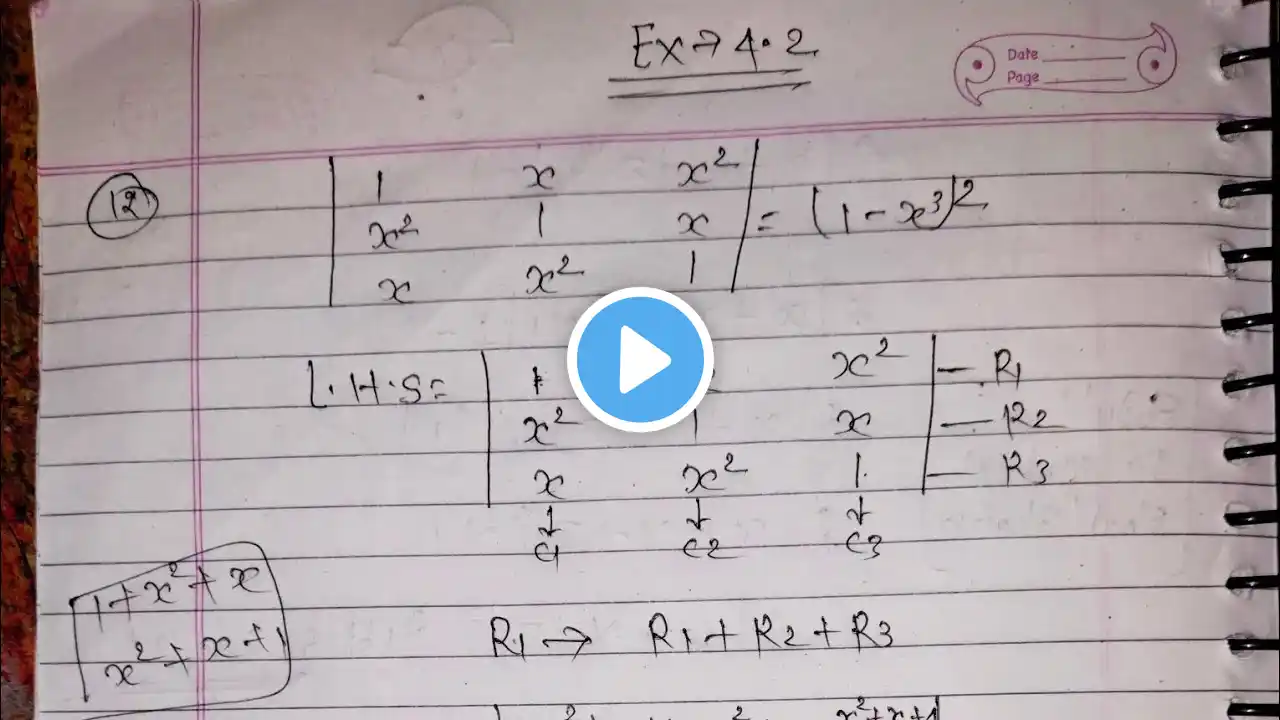 Ex → 4.2
Date
Page
(12)
| 1 x x² |
| x² 1 x | = (1 - x³)²
| x x² 1 |
L.H.S = | 1 x² | — R1
| x² 1 x | — R2
| x x² 1 | — R3
↓ ↓ ↓
C1 C2 C3
1+x²+x
x²+x+1
R1 → R1 + R2 + R3
x²+x+1